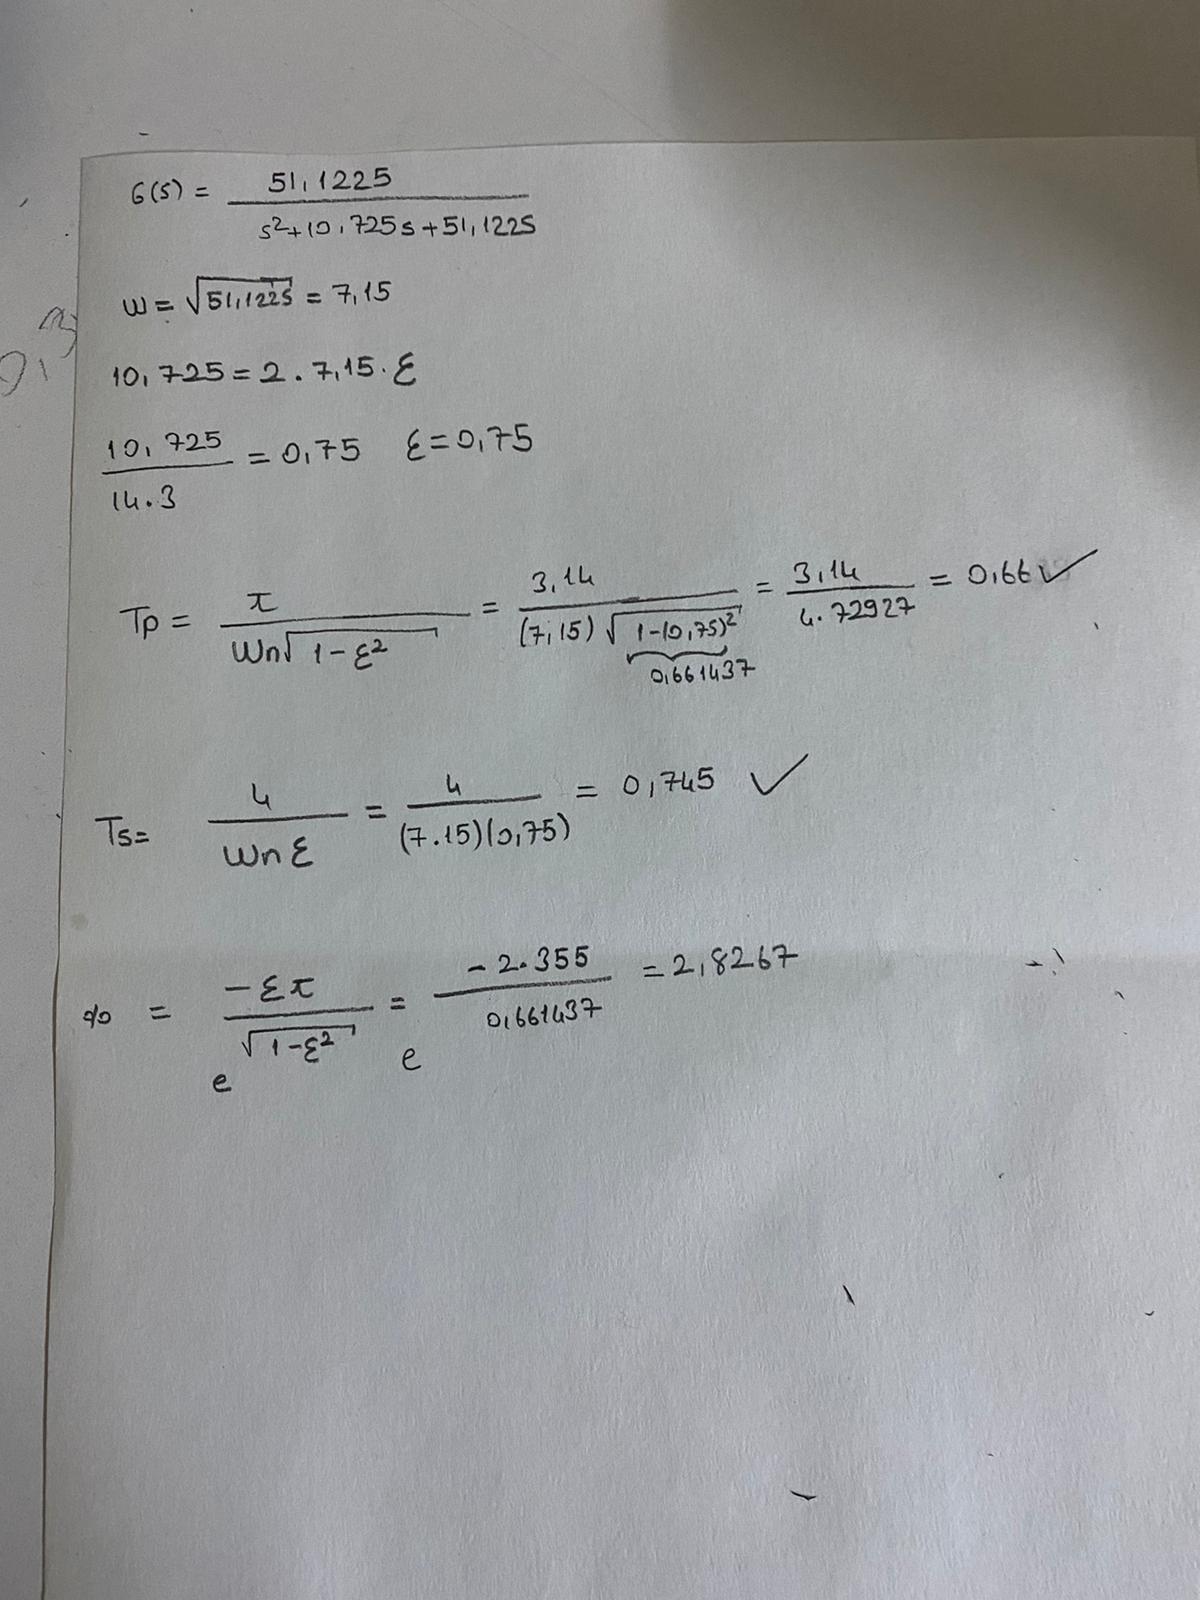 G(s) = 51,1225 / s²+10,725s+51,1225
w = √51,1225 = 7,15
10,725 = 2 . 7,15 . ξ
10,725 / 14.3 = 0,75 ξ=0,75
Tp = π / Wn√1-ξ² = 3,14 / (7,15)√1-(0,75)² = 3,14 / 4.72927 = 0,66 ✓
0,661437
Ts= 4 / Wn ξ = 4 / (7.15)(0,75) = 0,745 ✓
% = e -ξπ / √1-ξ² = e -2.355 / 0,661437 = 2,8267